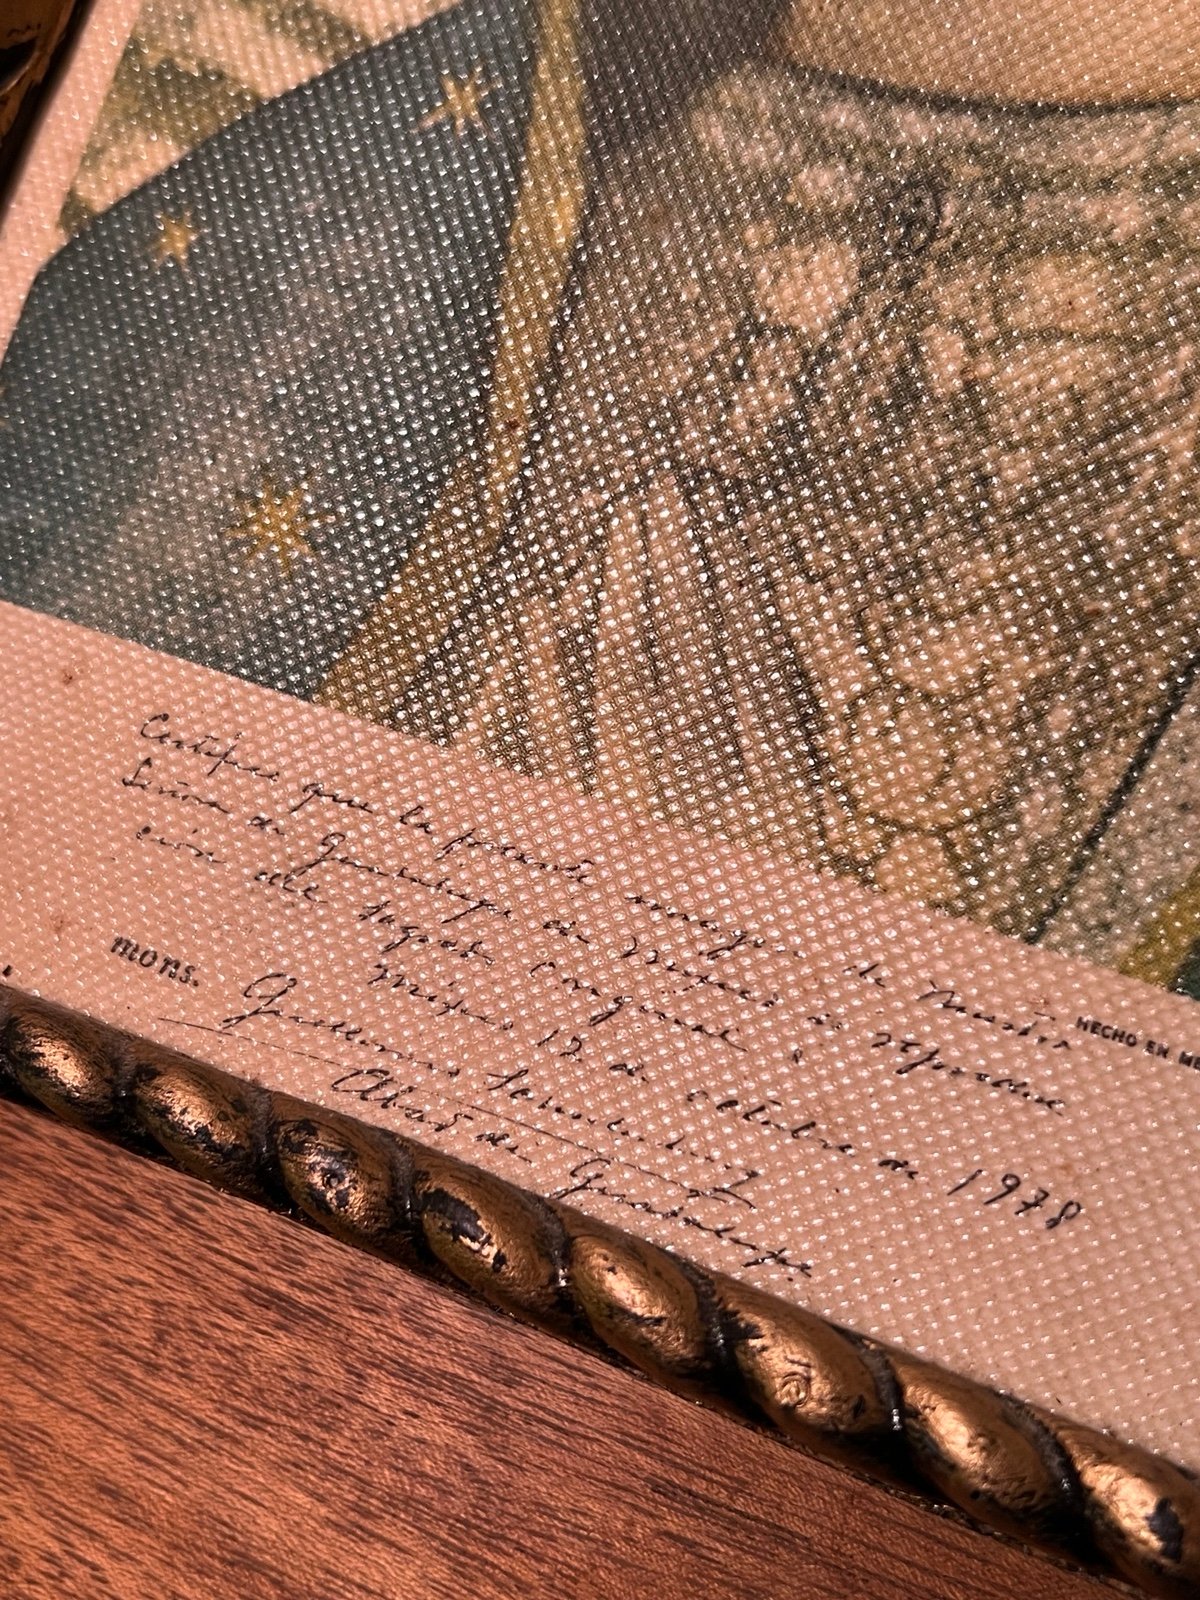 Certifico que la presente imagen de Nuestra
Señora de Guadalupe de México es reproduc
ción del sagrado original.
México 12 de octubre de 1978
mons. Guillermo Schulenburg
Abad de Guadalupe
HECHO EN M